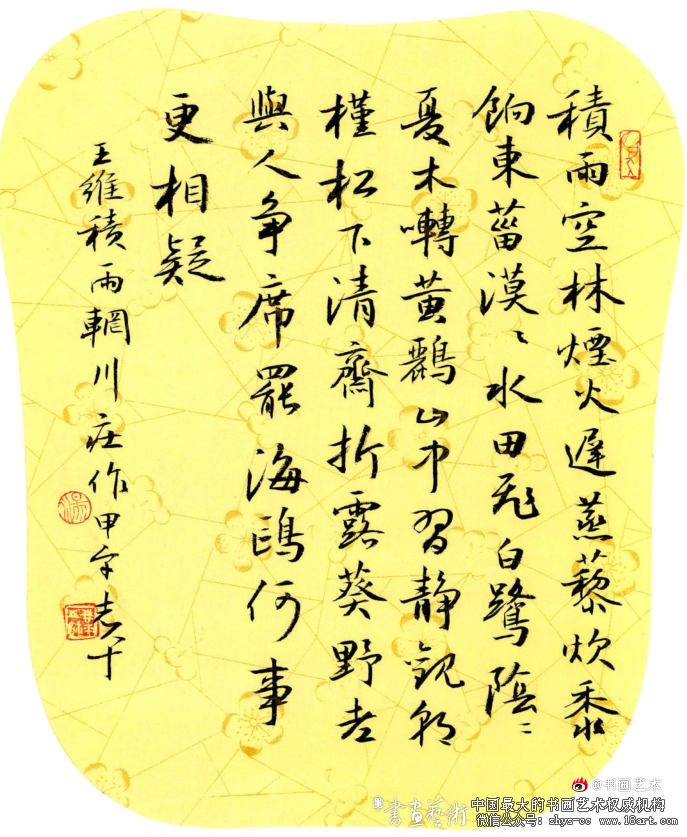 積雨空林煙火遲蒸藜炊黍
餉東菑漠〻水田飛白鷺陰〻
夏木囀黃鸝山中習静觀朝
槿松下清齋折露葵野老
與人争席罷海鷗何事
更相疑
王維積雨輞川莊作甲午志平
@书画艺术
書畫藝術
中国最大的书画艺术权威机构
微信公众号：shys-cc www.18art.com